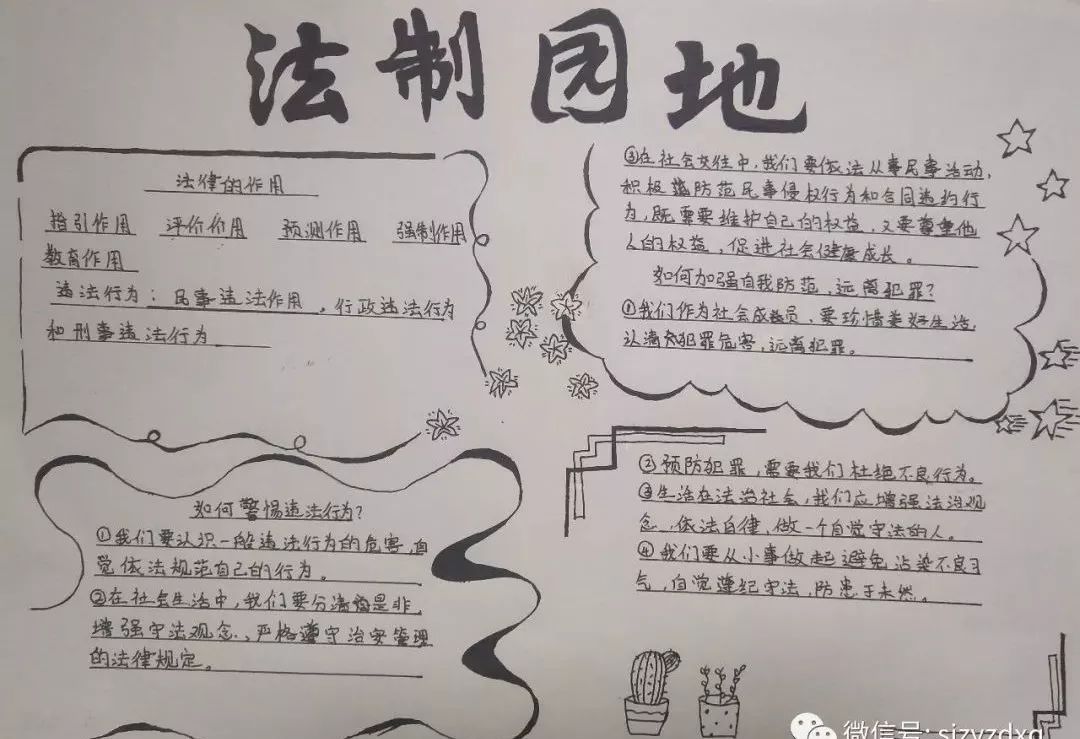 法制园地
法律的作用
指引作用 评价价用 预测作用 强制作用
教育作用
违法行为：民事违法作用，行政违法行为
和刑事违法行为
如何警惕违法行为?
①我们要认识一般违法行为的危害,自
觉依法规范自己的行为。
②在社会生活中,我们要分清是非,
增强守法观念,严格遵守治安管理
的法律规定。
③在社会交往中,我们要依法从事民事活动,
积极防范民事侵权行为和合同违约行
为,既需要维护自己的权益,又要尊重他
人的权益,促进社会健康成长。
如何加强自我防范,远离犯罪?
①我们作为社会成员、要珍惜美好生活,
认清犯罪危害,远离犯罪。
②预防犯罪,需要我们杜绝不良行为。
③生活在法治社会,我们应增强法治观
念,依法自律、做一个自觉守法的人。
④我们要从小事做起避免沾染不良习
气,自觉遵纪守法,防患于未然。
微信号: sjzyzdxq